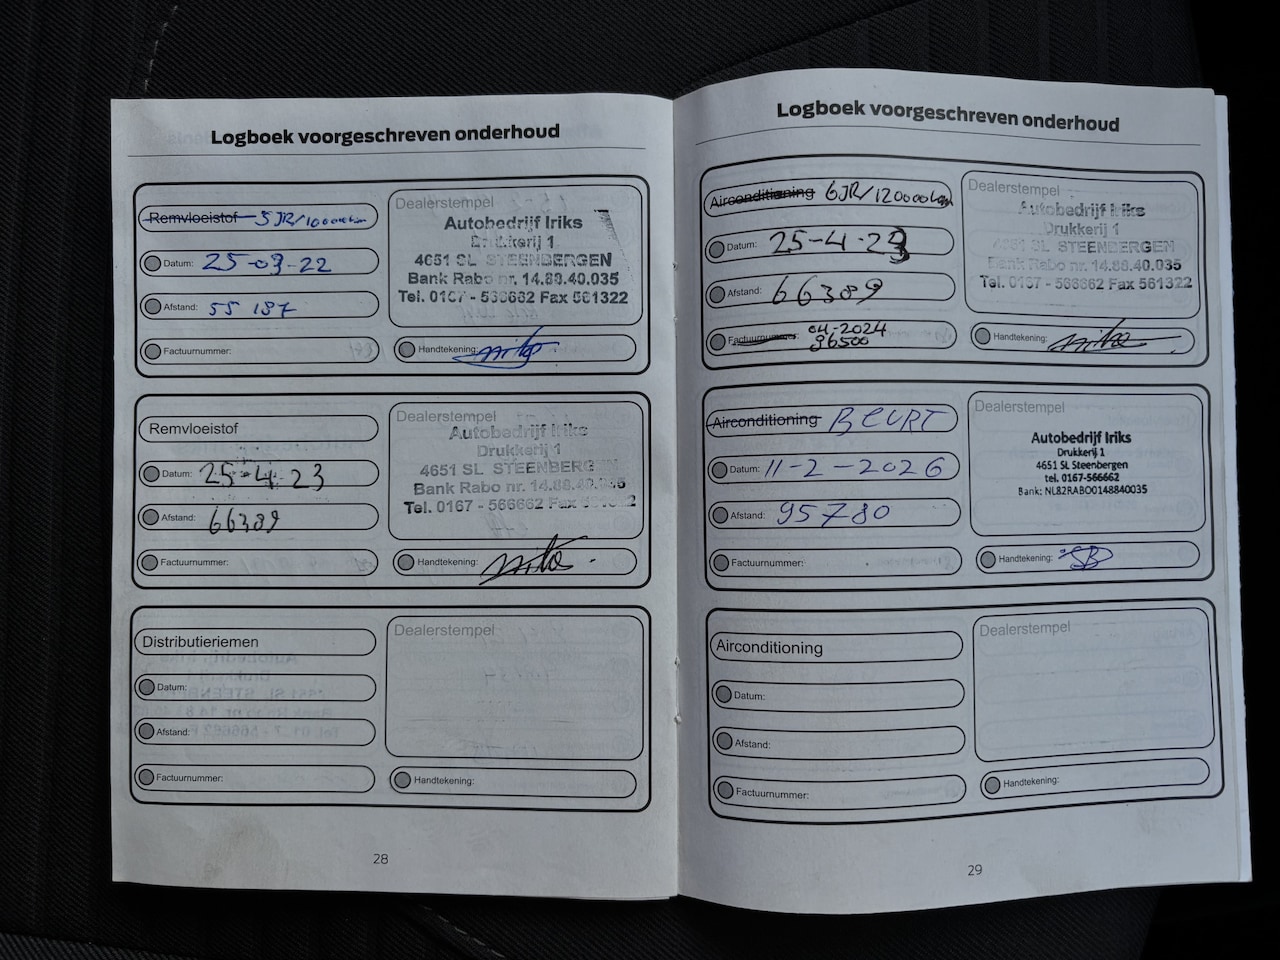 Logboek voorgeschreven onderhoud
Remvloeistof 5JR/100000km
Datum: 25-03-22
Afstand: 55 187
Factuurnummer:
Dealerstempel
Autobedrijf Iriks
Drukkerij 1
4651 SL STEENBERGEN
Bank Rabo nr. 14.88.40.035
Tel. 0167 - 566662 Fax 561322
Handtekening:
Remvloeistof
Datum: 25-4-23
Afstand: 66389
Factuurnummer:
Dealerstempel
Autobedrijf Iriks
Drukkerij 1
4651 SL STEENBERGEN
Bank Rabo nr. 14.88.40.035
Tel. 0167 - 566662 Fax
Handtekening:
Distributieriemen
Datum:
Afstand:
Factuurnummer:
Dealerstempel
Handtekening:
28
Logboek voorgeschreven onderhoud
Airconditioning 6JR/120000km
Datum: 25-4-23
Afstand: 66389
Factuurnummer: 04-2024
96500
Dealerstempel
Autobedrijf Iriks
Drukkerij 1
4651 SL STEENBERGEN
Bank Rabo nr. 14.88.40.035
Tel. 0167 - 566662 Fax 561322
Handtekening:
Airconditioning BEURT
Datum: 11-2-2026
Afstand: 95780
Factuurnummer:
Dealerstempel
Autobedrijf Iriks
Drukkerij 1
4651 SL Steenbergen
tel. 0167-566662
Bank: NL82RABO0148840035
Handtekening:
Airconditioning
Datum:
Afstand:
Factuurnummer:
Dealerstempel
Handtekening:
29